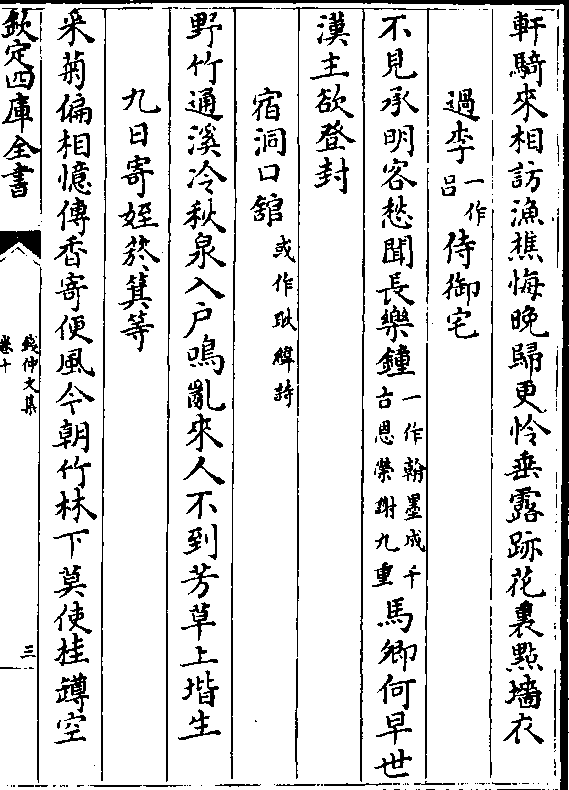 軒騎來相訪漁樵悔晚歸更怜垂露跡花裏點墻衣
過李一作呂侍御宅
不見承明客愁聞長樂鐘一作翰墨成千古恩榮謝九重馬卿何早世
漢主欲登封
宿洞口舘或作耿緯詩
野竹通溪冷秋泉入戶鳴亂來人不到芳草上堦生
九日寄姪箊箕等
采菊偏相憶傳香寄便風今朝竹林下莫使桂罇空
欽定四庫全書
錢仲文集
卷十
三